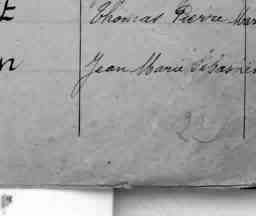 E Thomas Pierre Mar
n Jean Marie Sébastien
23